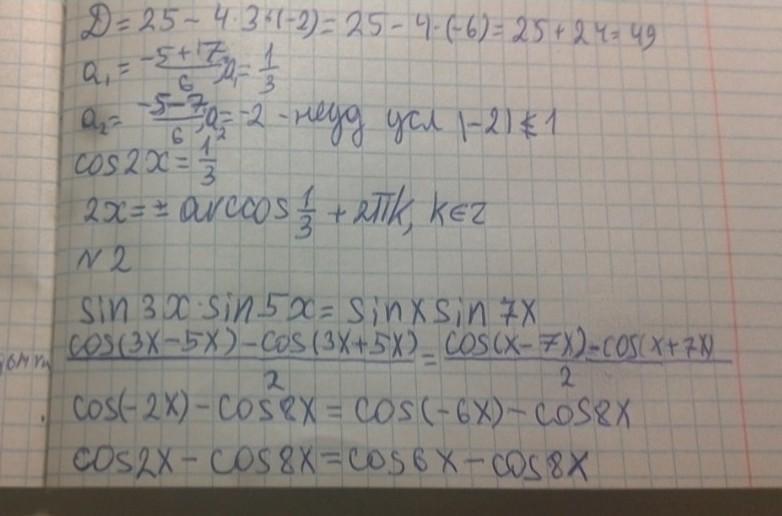 D = 25 - 4·3·(-2) = 25 - 4·(-6) = 25 + 24 = 49
a₁ = (-5+7)/6; a₁ = 1/3
a₂ = (-5-7)/6; a₂ = -2 - неуд усл |-2| ≰ 1
cos2x = 1/3
2x = ± arccos 1/3 + 2πk, k∈z
N 2
sin 3x · sin 5x = sin x sin 7x
(cos(3x-5x) - cos(3x+5x))/2 = (cos(x-7x) - cos(x+7x))/2
cos(-2x) - cos8x = cos(-6x) - cos8x
cos2x - cos8x = cos6x - cos8x